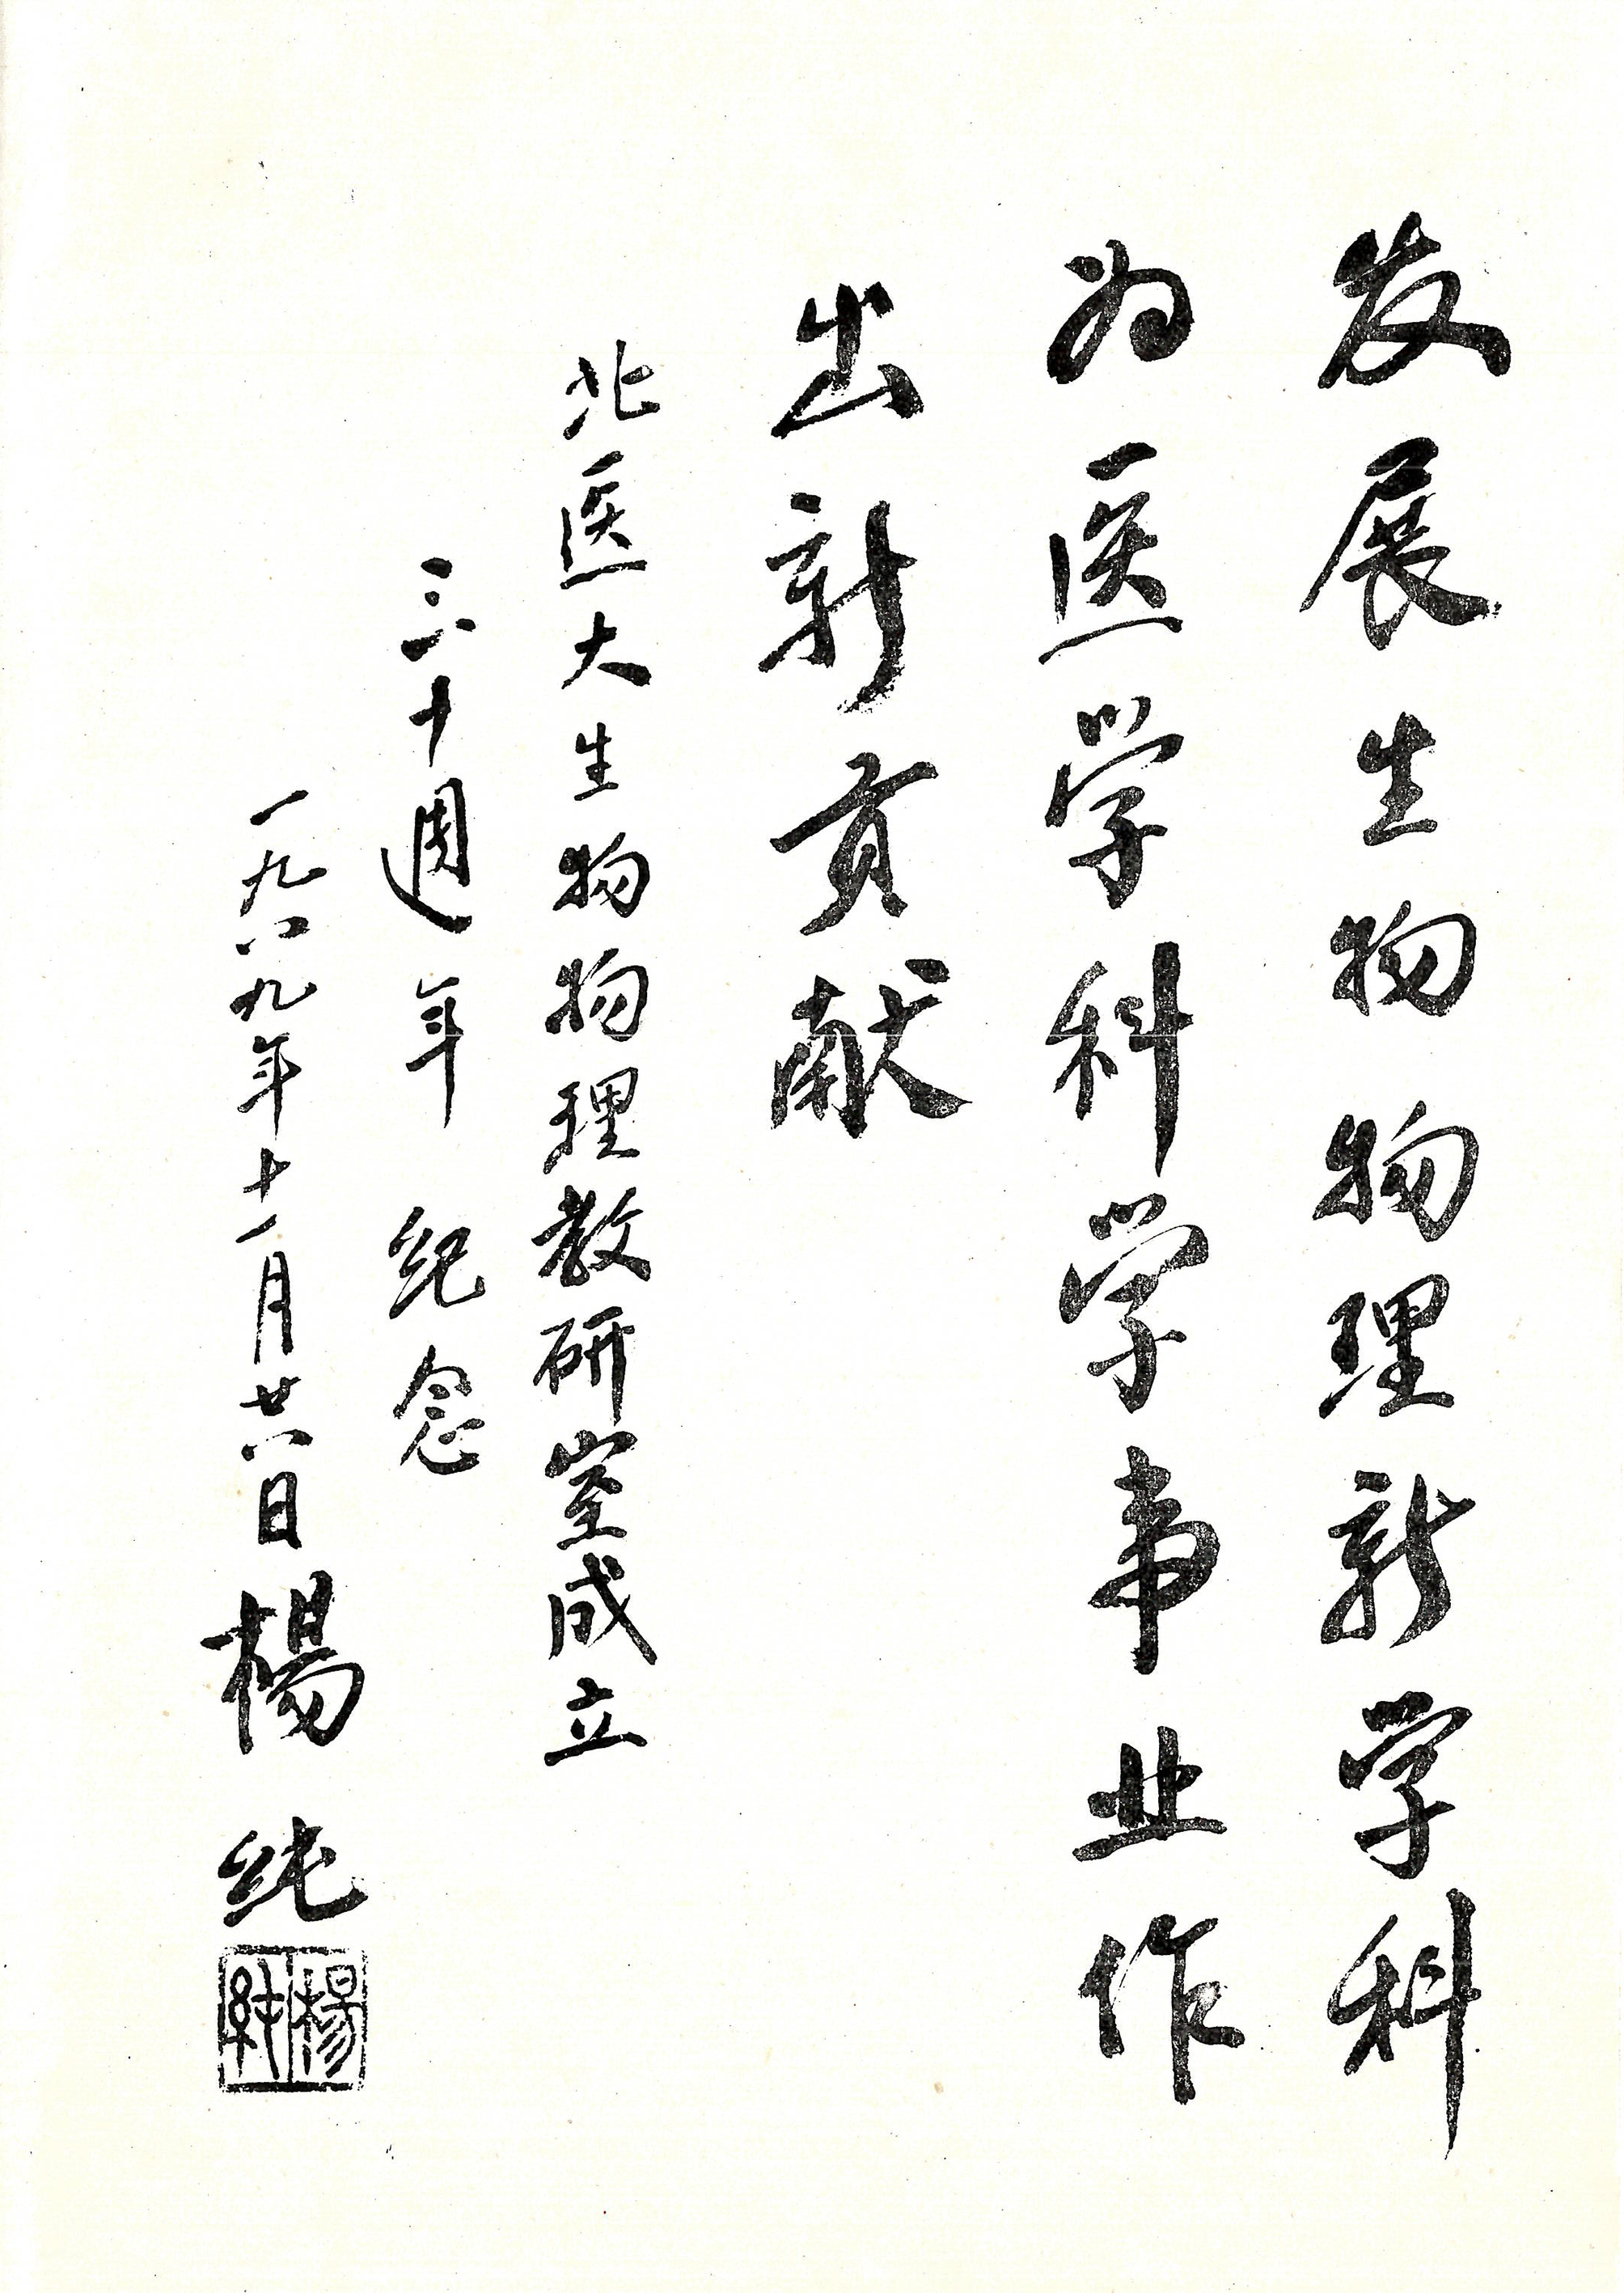 发展生物物理新学科
为医学科学事业作
出新贡献
北医大生物物理教研室成立
三十週年纪念
一九八九年十一月廿八日 楊纯
楊纯